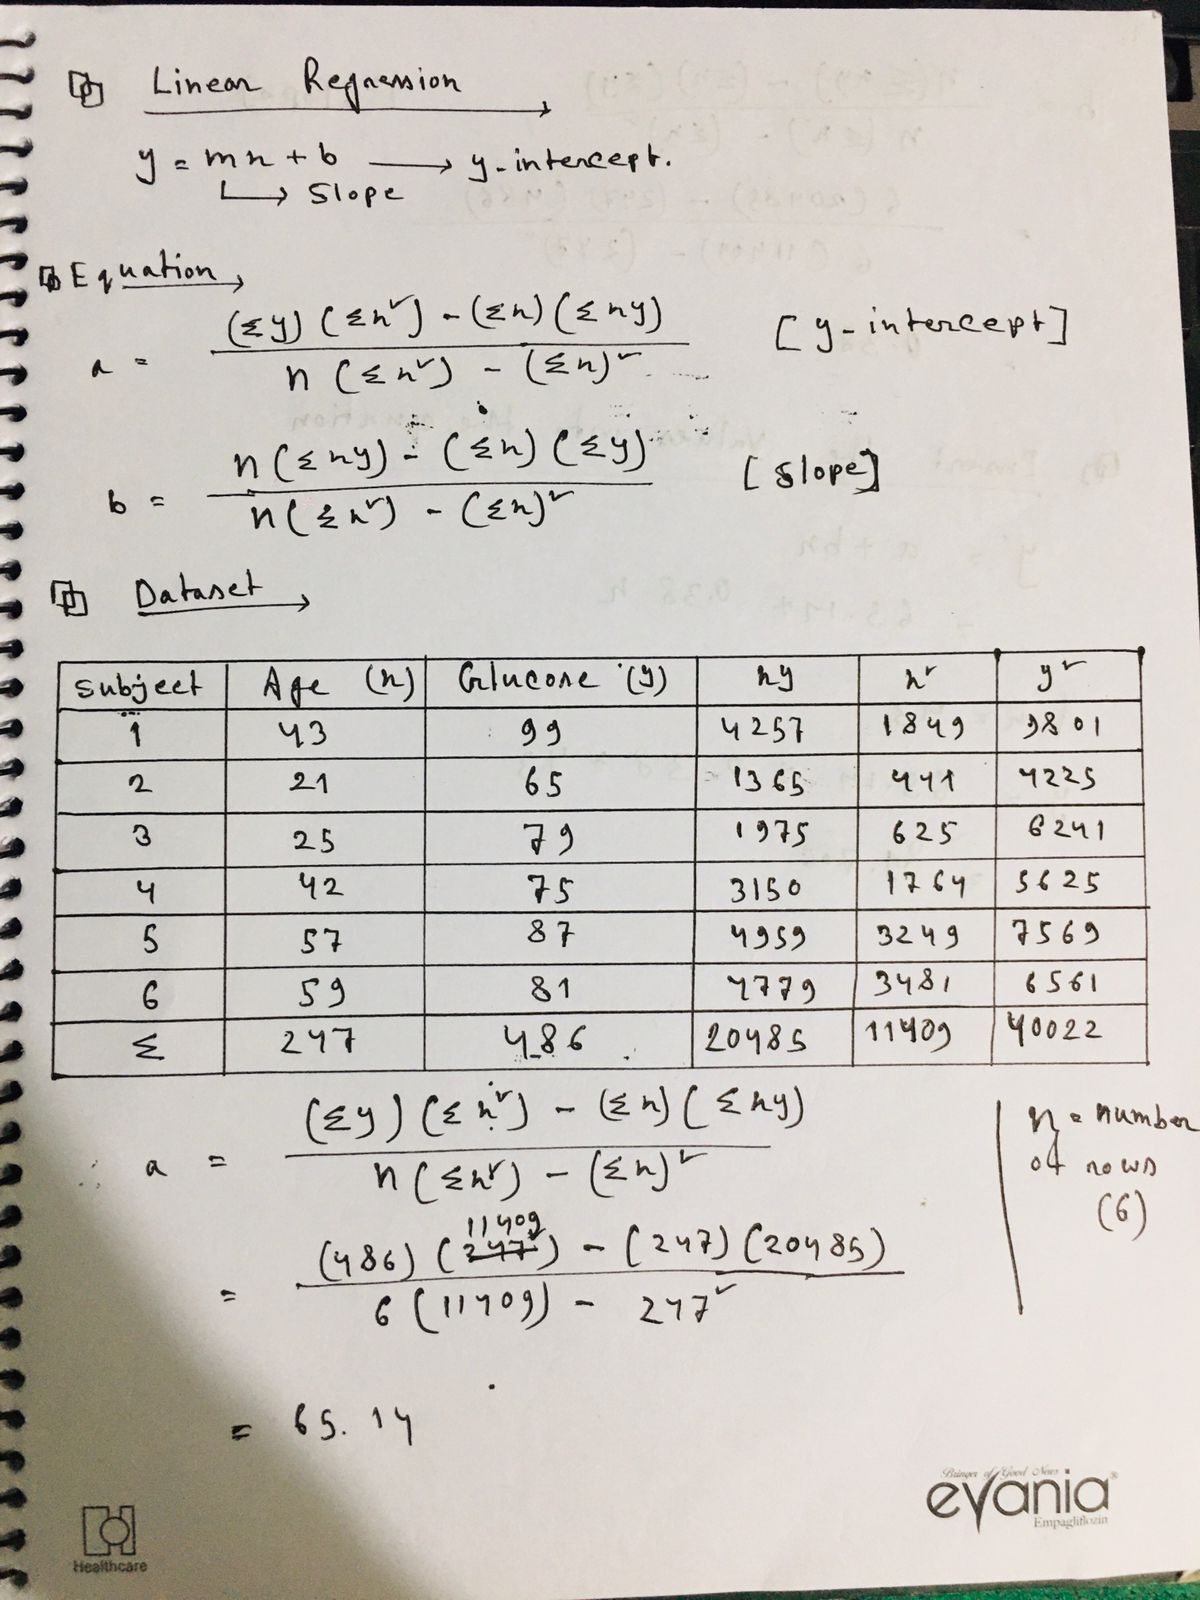 Linear Regression
y = mx + b → y-intercept.
→ Slope
Equation
a = (Σy)(Σx²) - (Σx)(Σxy) / n(Σx²) - (Σx)² [y-intercept]
b = n(Σxy) - (Σx)(Σy) / n(Σx²) - (Σx)² [slope]
Dataset
Subject Age (x) Glucose (y) xy x² y²
1 43 99 4257 1849 9801
2 21 65 1365 441 4225
3 25 79 1975 625 6241
4 42 75 3150 1764 5625
5 57 87 4959 3249 7569
6 59 81 4779 3481 6561
Σ 247 486 20485 11409 40022
∴ a = (Σy)(Σx²) - (Σx)(Σxy) / n(Σx²) - (Σx)²
n = number
of rows
(6)
= (486)(11409) - (247)(20485) / 6(11409) - 247²
= 65.14
Bringer of Good News
evania
Empagliflozin
Healthcare